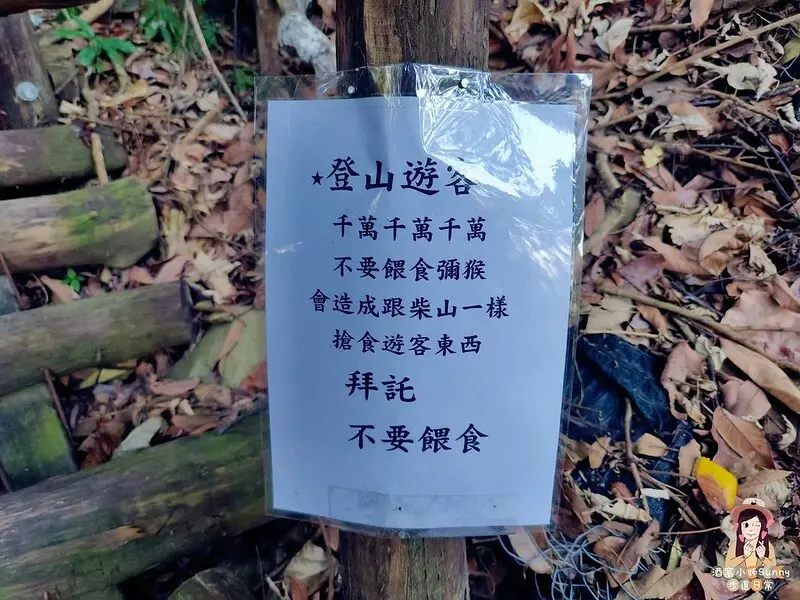 ★登山遊客
千萬千萬千萬
不要餵食彌猴
會造成跟柴山一樣
搶食遊客東西
拜託
不要餵食
酒窩小姊Sunny
步道日常